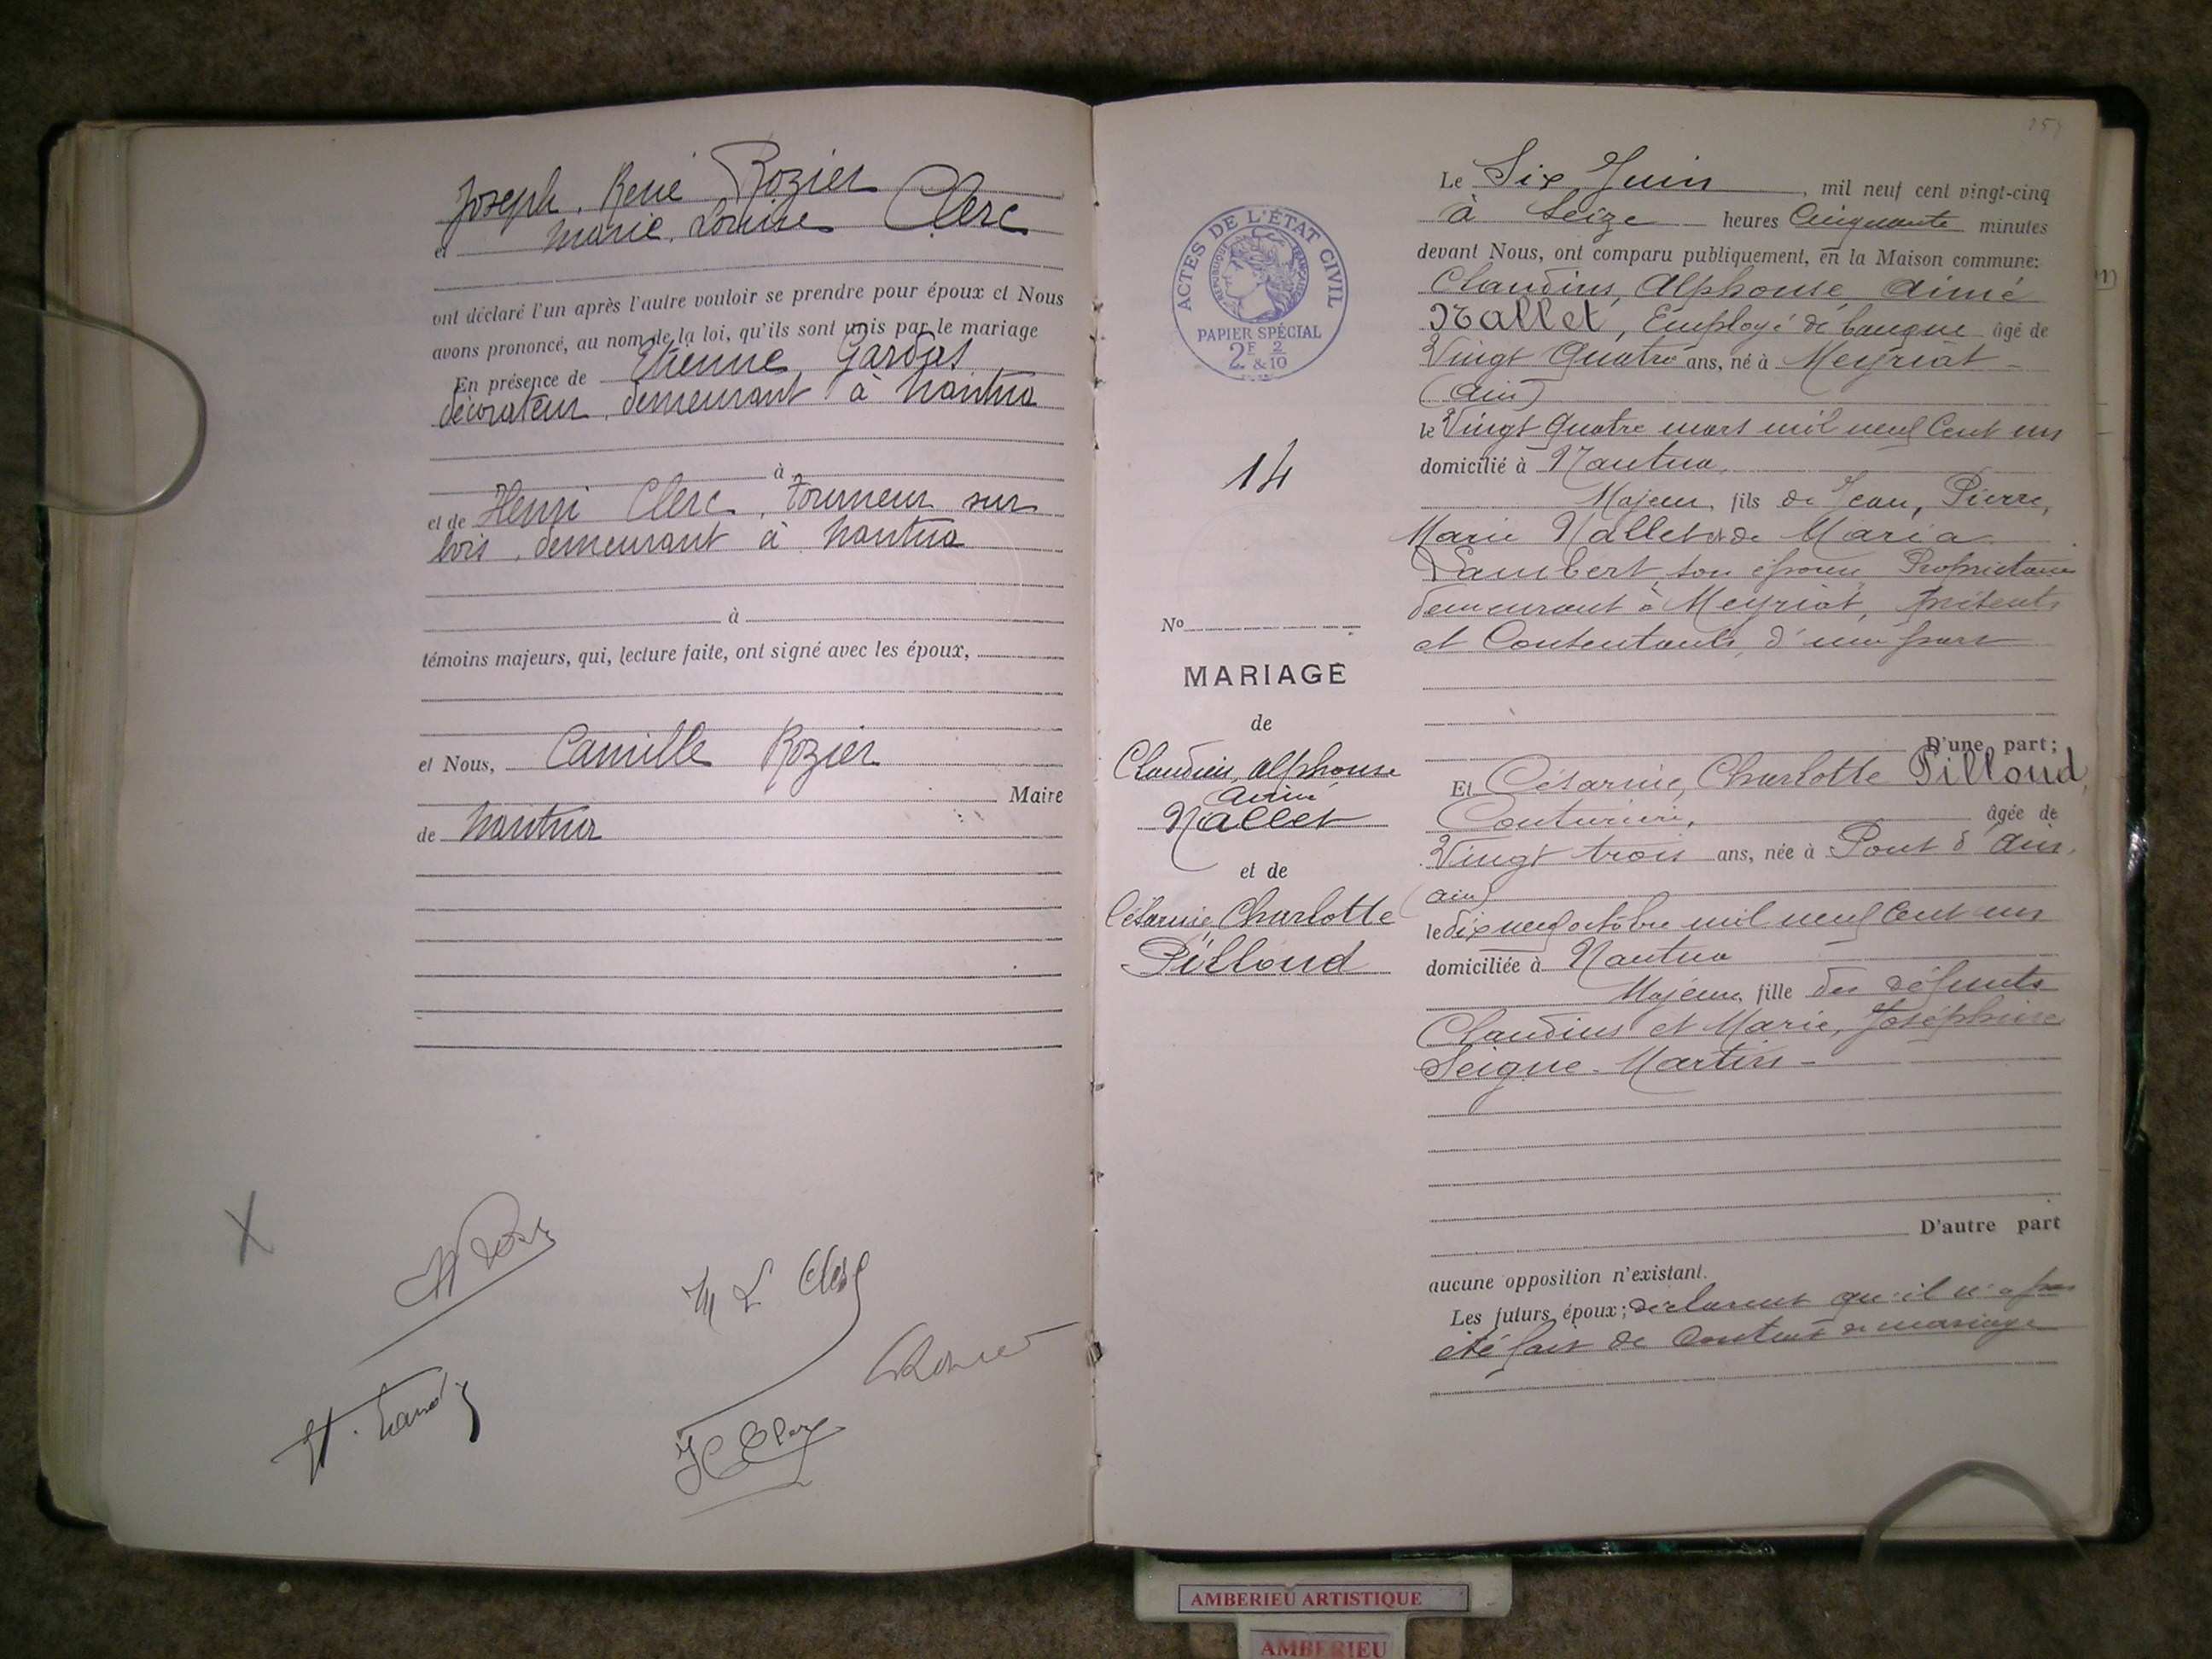 Joseph, René Rozier
et Marie, Louise Clerc
ont déclaré l'un après l'autre vouloir se prendre pour époux et Nous
avons prononcé, au nom de la loi, qu'ils sont unis par le mariage
En présence de Etienne Gardas
décorateur, demeurant à Nantua
à
et de Henri Clerc, tourneur sur
bois, demeurant à Nantua
à
témoins majeurs, qui, lecture faite, ont signé avec les époux,
et Nous, Camille Rozier
Maire
de Nantua
X
M L Clerc
H Clerc
ACTES DE L'ÉTAT CIVIL
RÉPUBLIQUE FRANÇAISE
PAPIER SPÉCIAL
2F & 2/10
14
No
MARIAGE
de
Claudius, Alphonse
Aimé
Nallet
et de
Césarine, Charlotte
Pilloud
Le Six Juin, mil neuf cent vingt-cinq
à Seize heures Cinquante minutes
devant Nous, ont comparu publiquement, en la Maison commune:
Claudius, Alphonse, Aimé
Nallet, Employé de banque âgé de
Vingt Quatre ans, né à Meyriat
(Ain)
le Vingt Quatre mars mil neuf Cent un
domicilié à Nantua,
Majeur, fils de Jean, Pierre,
Marie Nallet et de Maria
Lambert, son épouse, Propriétaires
demeurant à Meyriat, présents
et Consentants, d'une part
D'une part;
Et Césarine, Charlotte Pilloud,
Couturière, âgée de
Vingt trois ans, née à Pont d'Ain,
(Ain)
le dix neuf octobre mil neuf Cent un
domiciliée à Nantua
Majeure, fille des défunts
Claudius et Marie, Joséphine
Seigne-Martin -
D'autre part
aucune opposition n'existant.
Les futurs époux; déclarent qu'il n'a pas
été fait de Contrat de mariage
AMBERIEU ARTISTIQUE
AMBERIEU